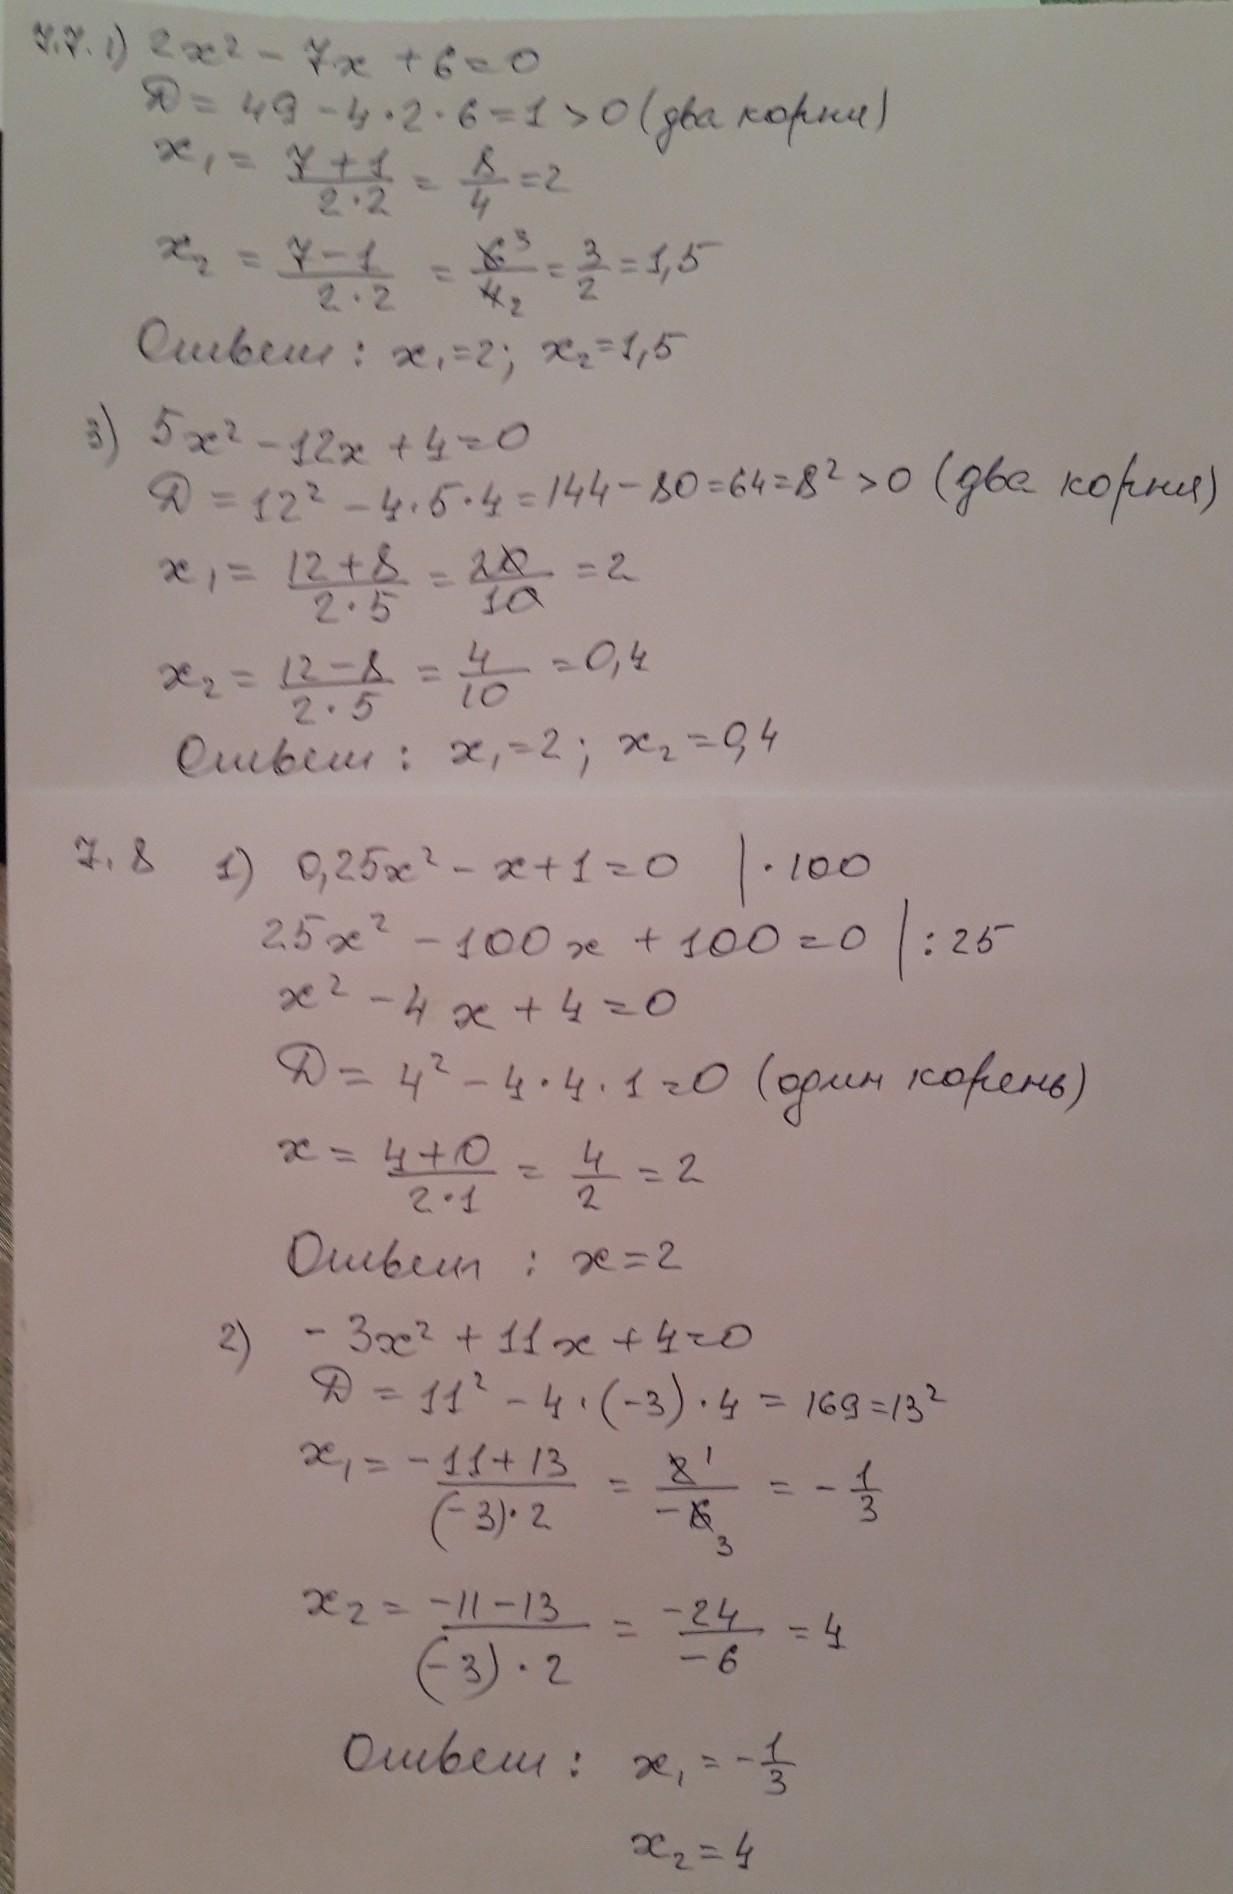 7.7. 1) 2x² - 7x + 6 = 0
D = 49 - 4·2·6 = 1 > 0 (два корня)
x₁ = (7+1)/(2·2) = 8/4 = 2
x₂ = (7-1)/(2·2) = 6³/4₂ = 3/2 = 1,5
Ответ: x₁=2; x₂=1,5
3) 5x² - 12x + 4 = 0
D = 12² - 4·5·4 = 144 - 80 = 64 = 8² > 0 (два корня)
x₁ = (12+8)/(2·5) = 20/10 = 2
x₂ = (12-8)/(2·5) = 4/10 = 0,4
Ответ: x₁=2; x₂=0,4
7.8 1) 0,25x² - x + 1 = 0 | ·100
25x² - 100x + 100 = 0 | :25
x² - 4x + 4 = 0
D = 4² - 4·4·1 = 0 (один корень)
x = (4+0)/(2·1) = 4/2 = 2
Ответ: x=2
2) -3x² + 11x + 4 = 0
D = 11² - 4·(-3)·4 = 169 = 13²
x₁ = (-11+13)/((-3)·2) = 2¹/-6₃ = -1/3
x₂ = (-11-13)/((-3)·2) = -24/-6 = 4
Ответ: x₁ = -1/3
x₂ = 4